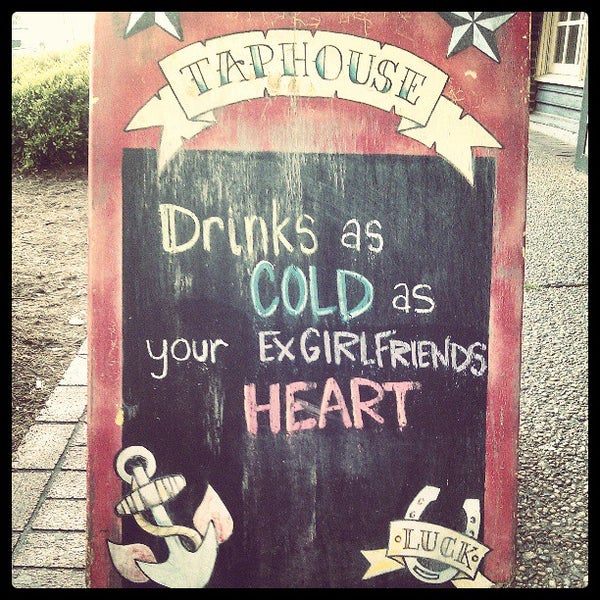 TAPHOUSE
Drinks as
COLD as
your EXGIRLFRIENDS
HEART
LUCK